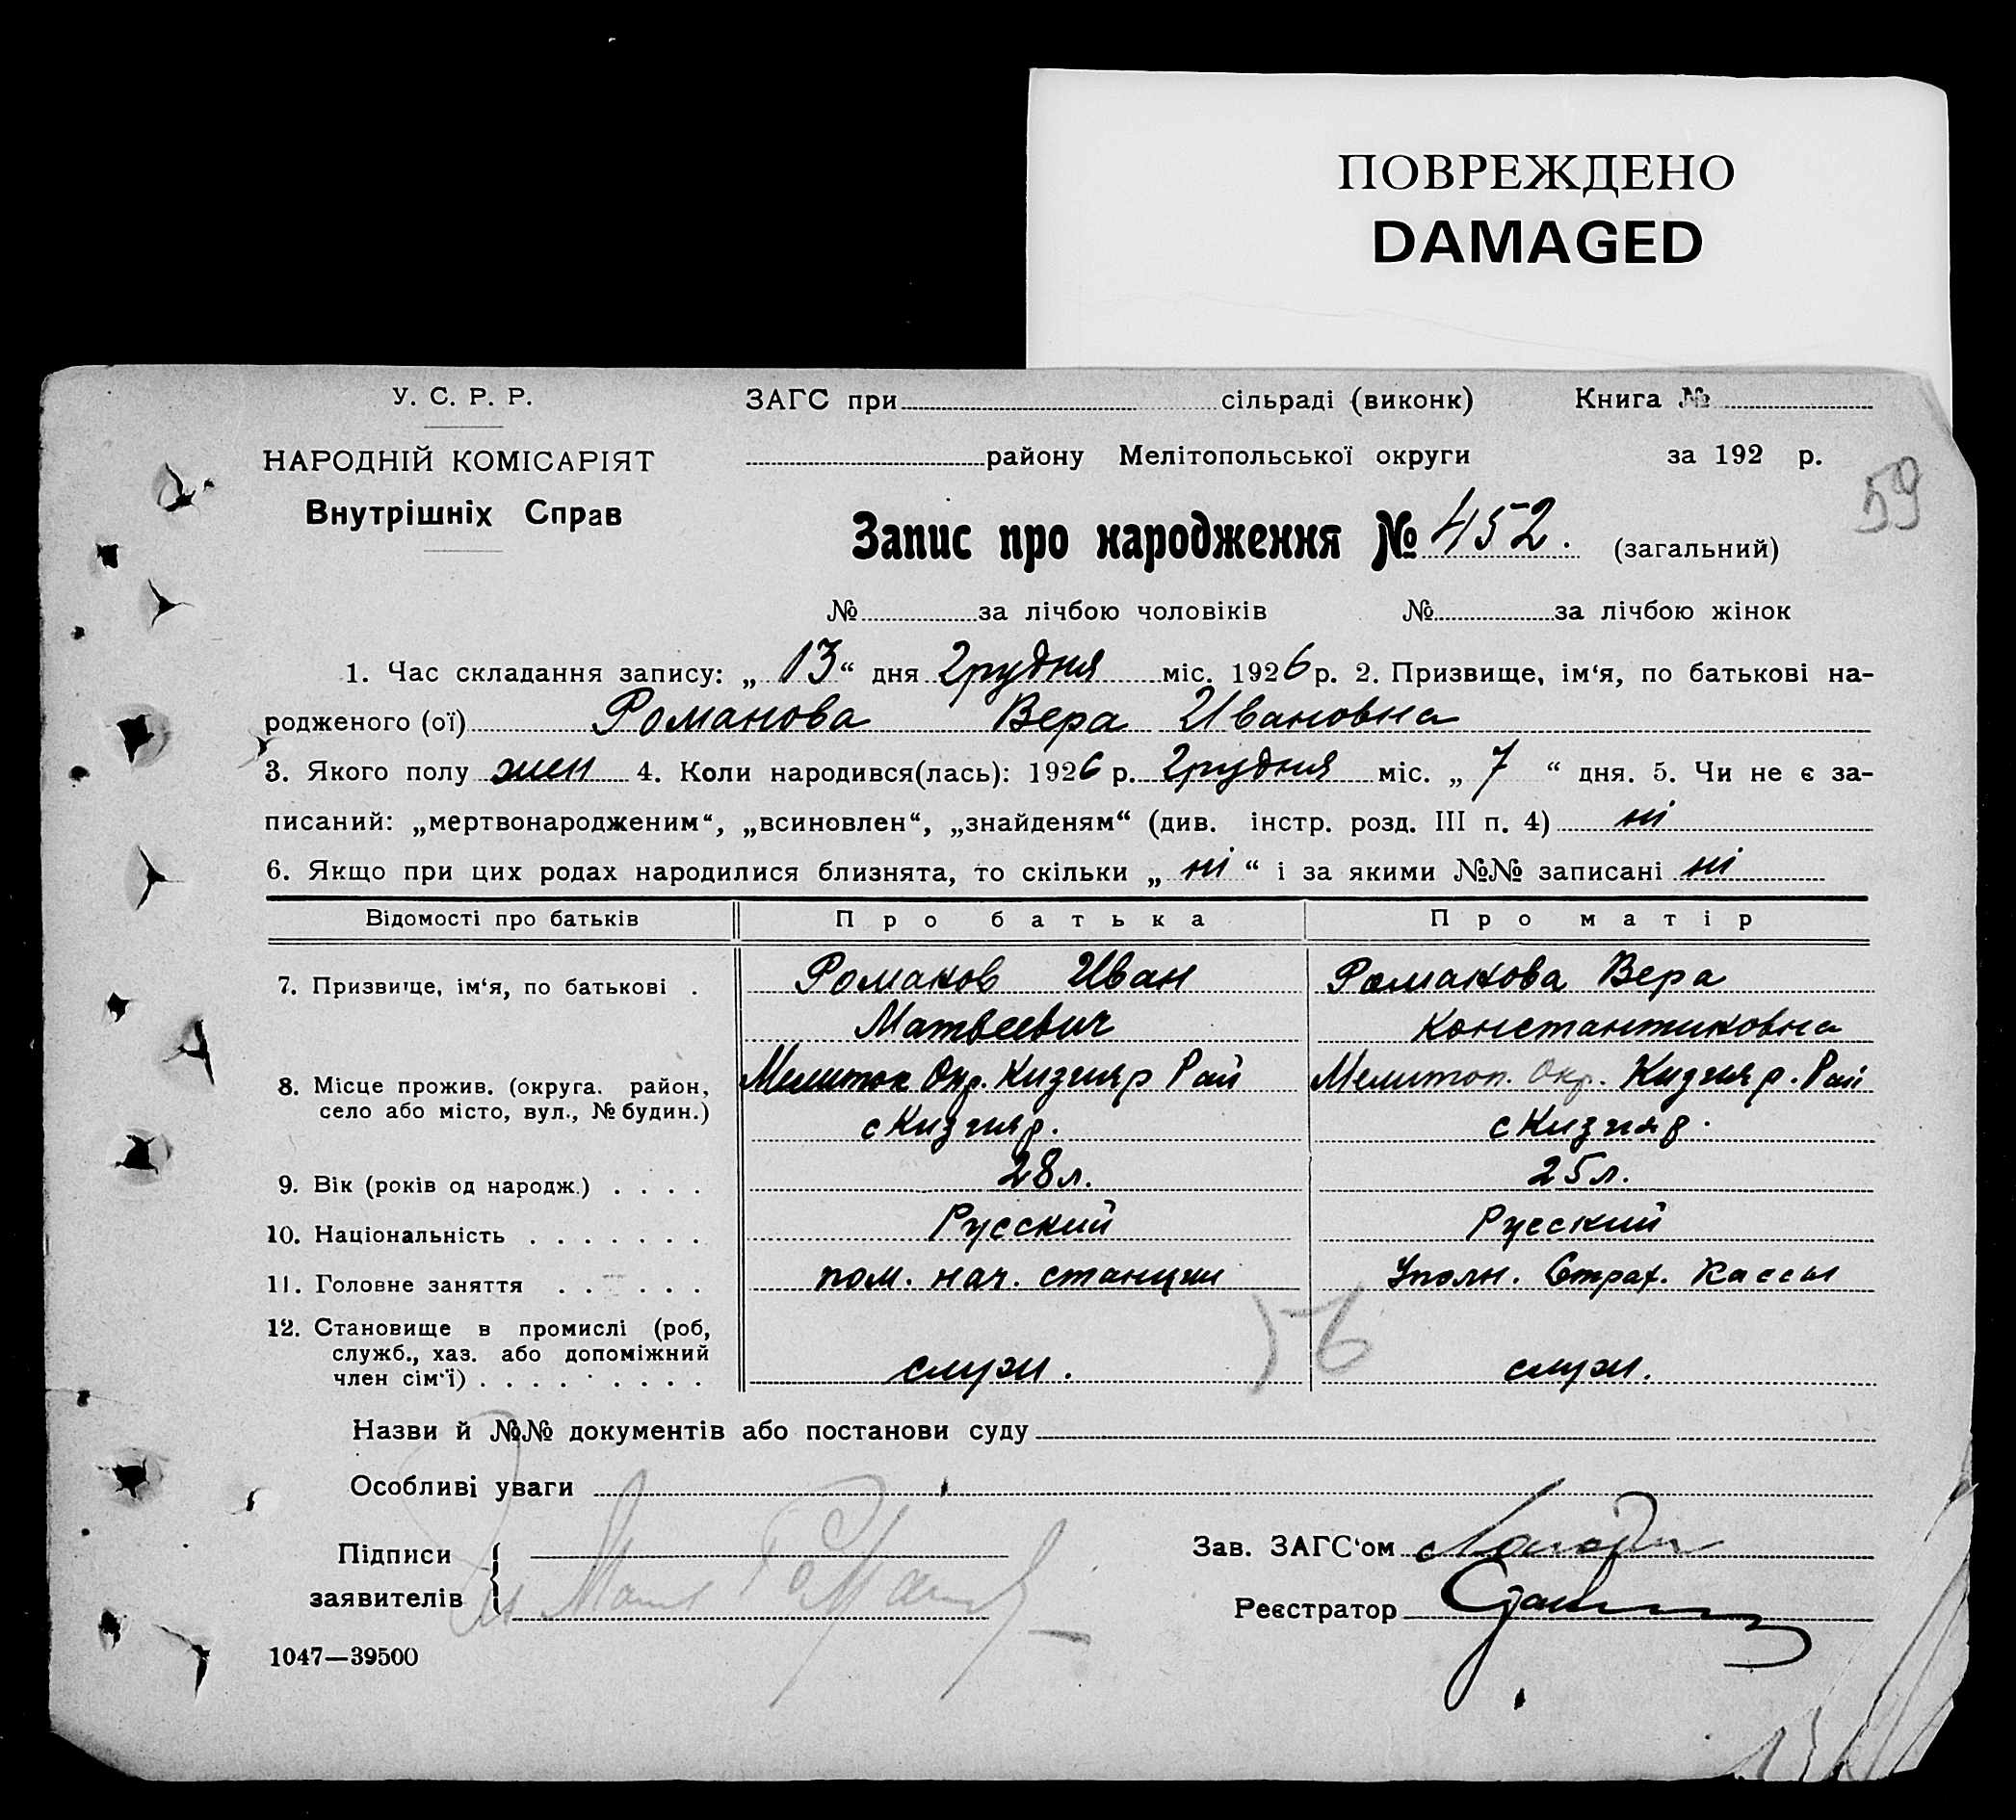 ПОВРЕЖДЕНО
DAMAGED
У. С. Р. Р.
ЗАГС при сільраді (виконк) Книга №
НАРОДНІЙ КОМІСАРІЯТ
району Мелітопольської округи за 192 р.
59
Внутрішніх Справ
Запис про народження № 452. (загальний)
№ за лічбою чоловіків № за лічбою жінок
1. Час складання запису: „ 13 “ дня Грудня міс. 1926 р. 2. Призвище, ім‘я, по батькові на-
родженого (ої) Романова Вера Ивановна
3. Якого полу жен 4. Коли народився(лась): 1926 р. Грудня міс. „ 7 “ дня. 5. Чи не є за-
писаний: „мертвонародженим“, „всиновлен“, „знайденям“ (див. інстр. розд. III п. 4) ні
6. Якщо при цих родах народилися близнята, то скільки „ ні “ і за якими №№ записані ні
Відомості про батьків Про батька Про матір
7. Призвище, ім‘я, по батькові . Романов Иван Романова Вера
Матвеевич Константиновна
8. Місце прожив. (округа. район, Мелитоп Окр. Кизияр Рай Мелитоп. Окр. Кизияр. Рай
село або місто, вул., № будин.) с Кизияр. с Кизияр.
9. Вік (років од народж.) . . . . 28 л. 25 л.
10. Національність . . . . . . . Русский Русский
11. Головне заняття . . . . . . пом. нач. станции Уполн. Страх. Кассы
12. Становище в промислі (роб,
служб., хаз. або допоміжний служ. 56 служ.
член сім‘ї) . . . . . . . . .
Назви й №№ документів або постанови суду
Особливі уваги
Підписи
заявителів
Зав. ЗАГС‘ом
Реєстратор
1047—39500